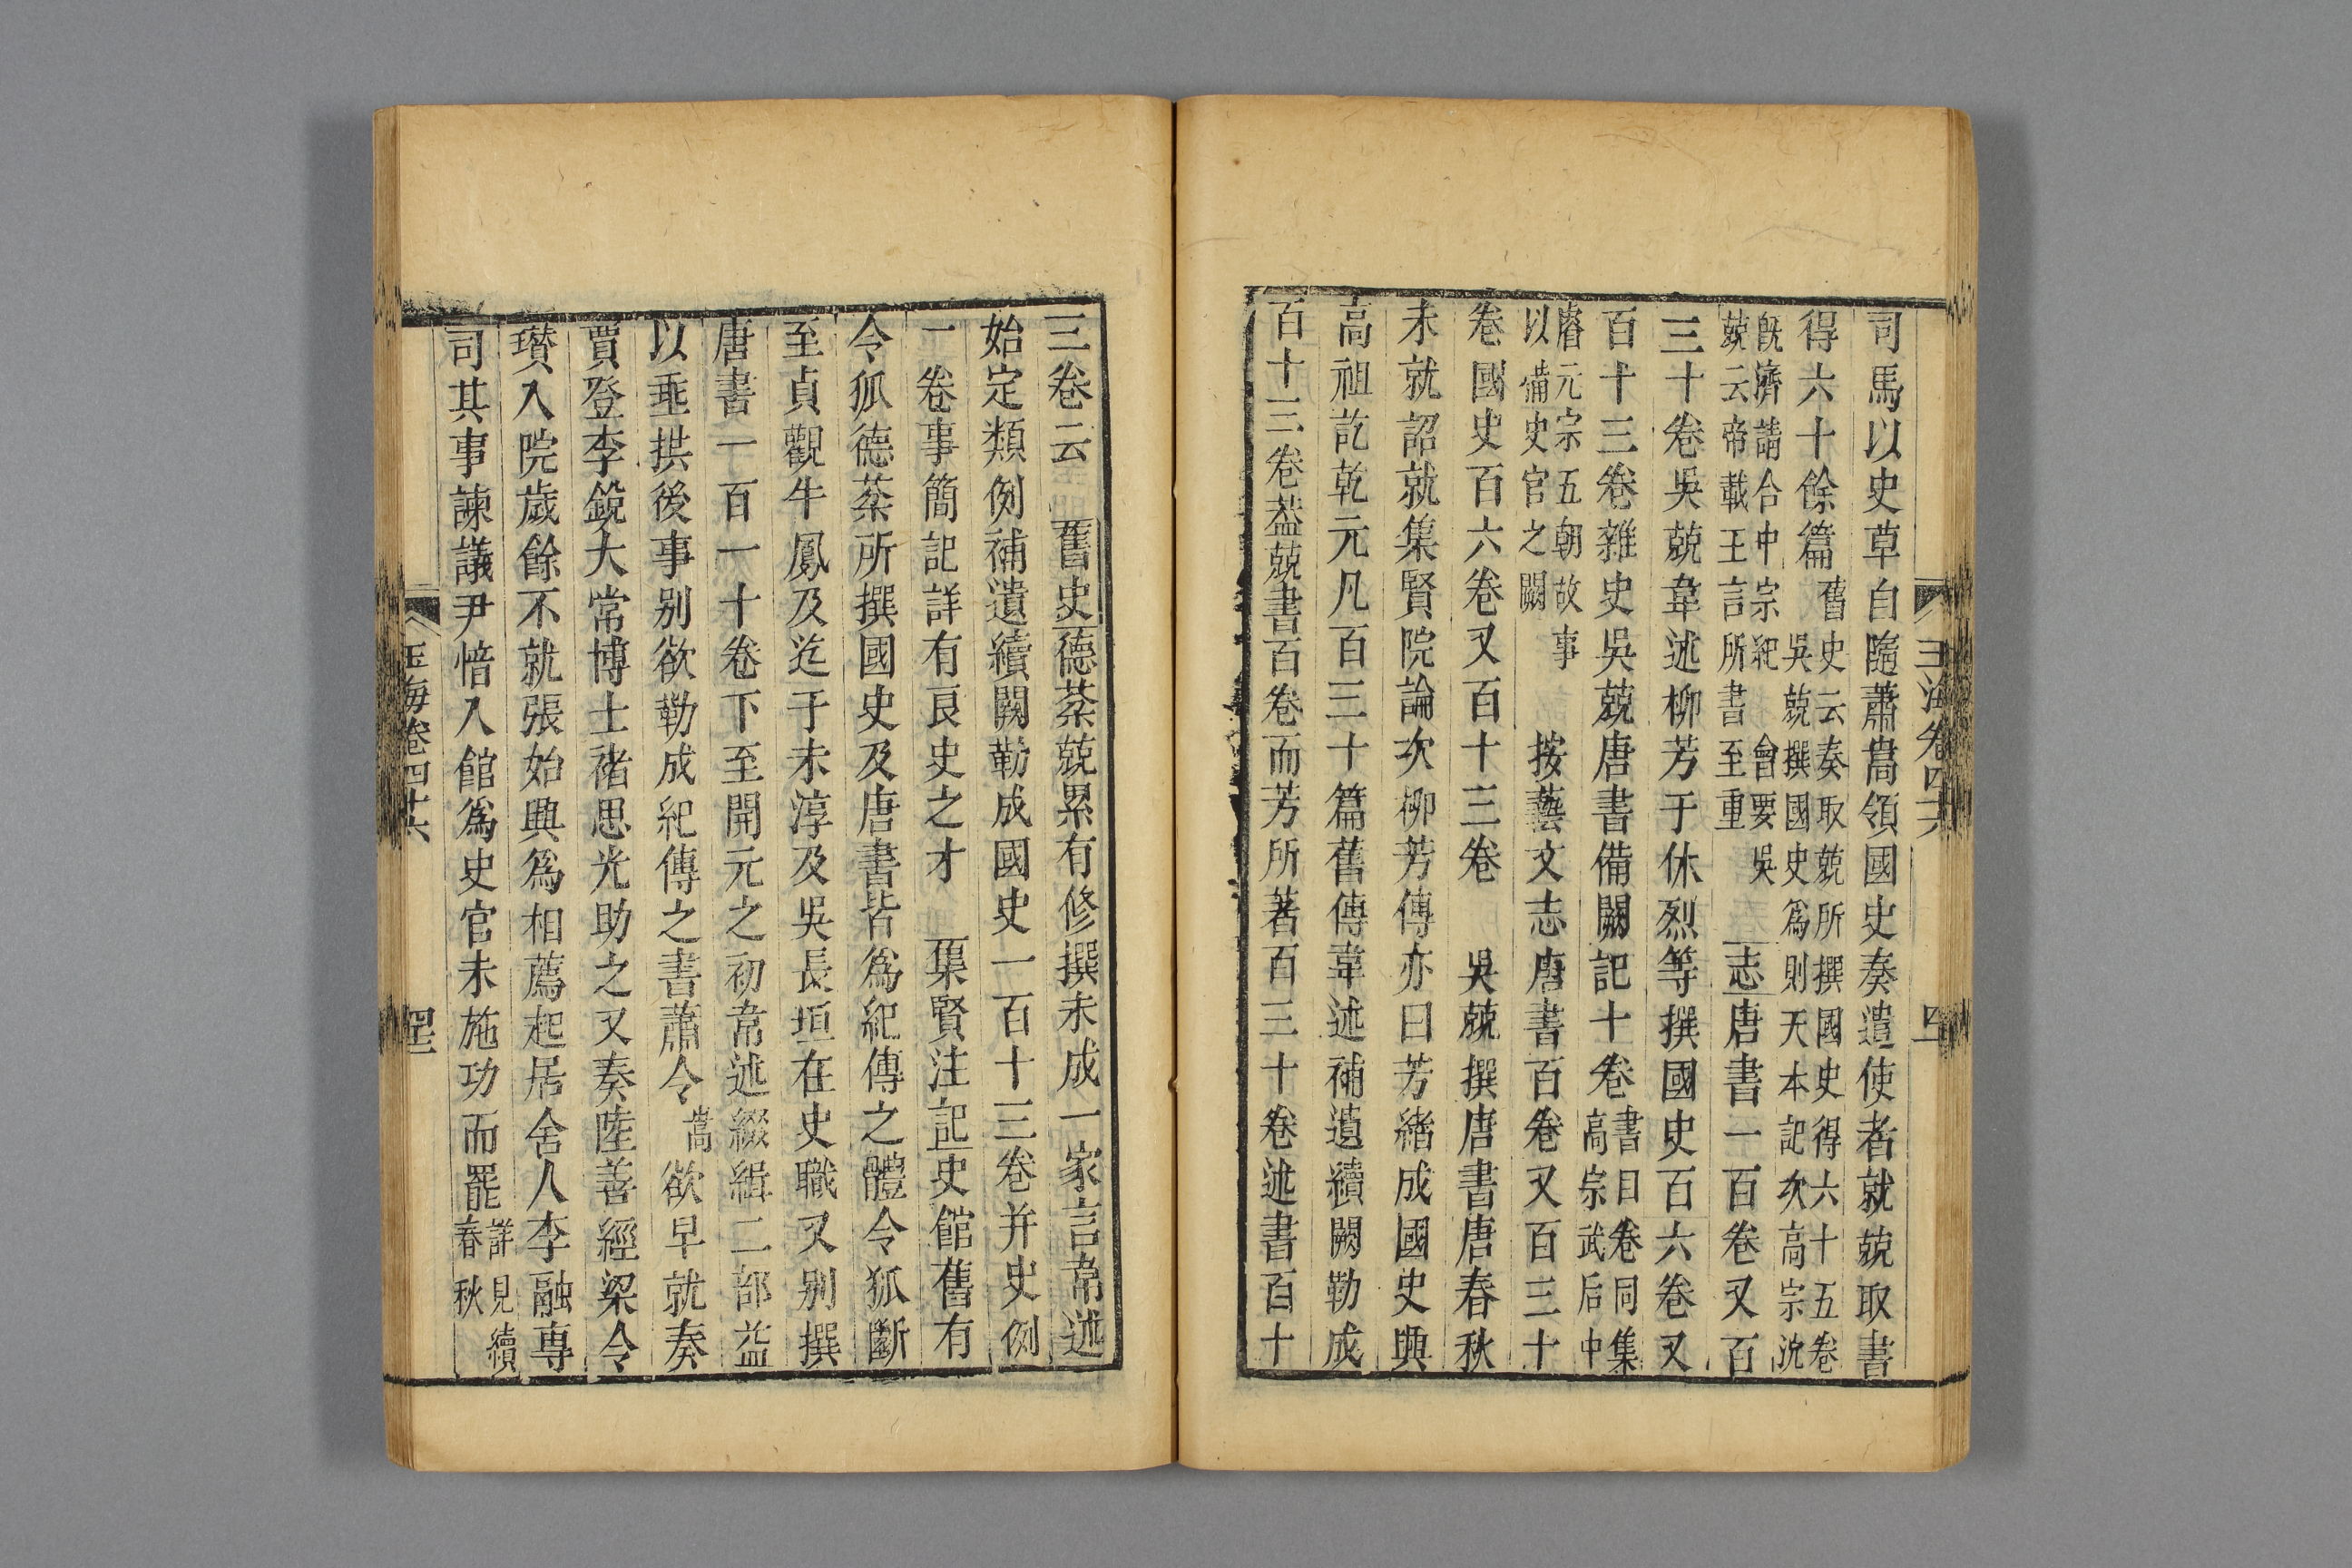 司馬以史草自隨蕭嵩領國史奏遣使者就兢取書
得六十餘篇舊史云奏取兢所撰國史得六十五卷
吳兢撰國史爲則天本記次高宗沈
旣濟請合中宗紀會要吳
兢云帝載王言所書至重志唐書一百卷又百
三十卷吳兢韋述柳芳于休烈等撰國史百六卷又
百十三卷雜史吳兢唐書備闕記十卷書目卷同集
高宗武后中
睿元宗五朝故事
以備史官之闕按藝文志唐書百卷又百三十
卷國史百六卷又百十三卷吳兢撰唐書唐春秋
未就詔就集賢院論次柳芳傳亦曰芳緒成國史興
高祖訖乾元凡百三十篇舊傳韋述補遺續闕勒成
百十三卷葢兢書百卷而芳所著百三十卷述書百十
三卷云舊史德棻兢累有修撰未成一家言韋述
始定類例補遺續闕勒成國史一百十三卷并史例
一卷事簡記詳有良史之才集賢注記史館舊有
令狐德棻所撰國史及唐書皆爲紀傳之體令狐斷
至貞觀牛鳳及迄于未淳及吳長垣在史職又別撰
唐書一百一十卷下至開元之初韋述綴緝二部益
以垂拱後事別欲勒成紀傳之書蕭令嵩欲早就奏
賈登李銳大常博士褚思光助之又奏陸善經梁令
瓚入院歲餘不就張始興爲相薦起居舍人李融專
司其事諫議尹愔入館爲史官未施功而罷詳見續
春秋
玉海卷四十六